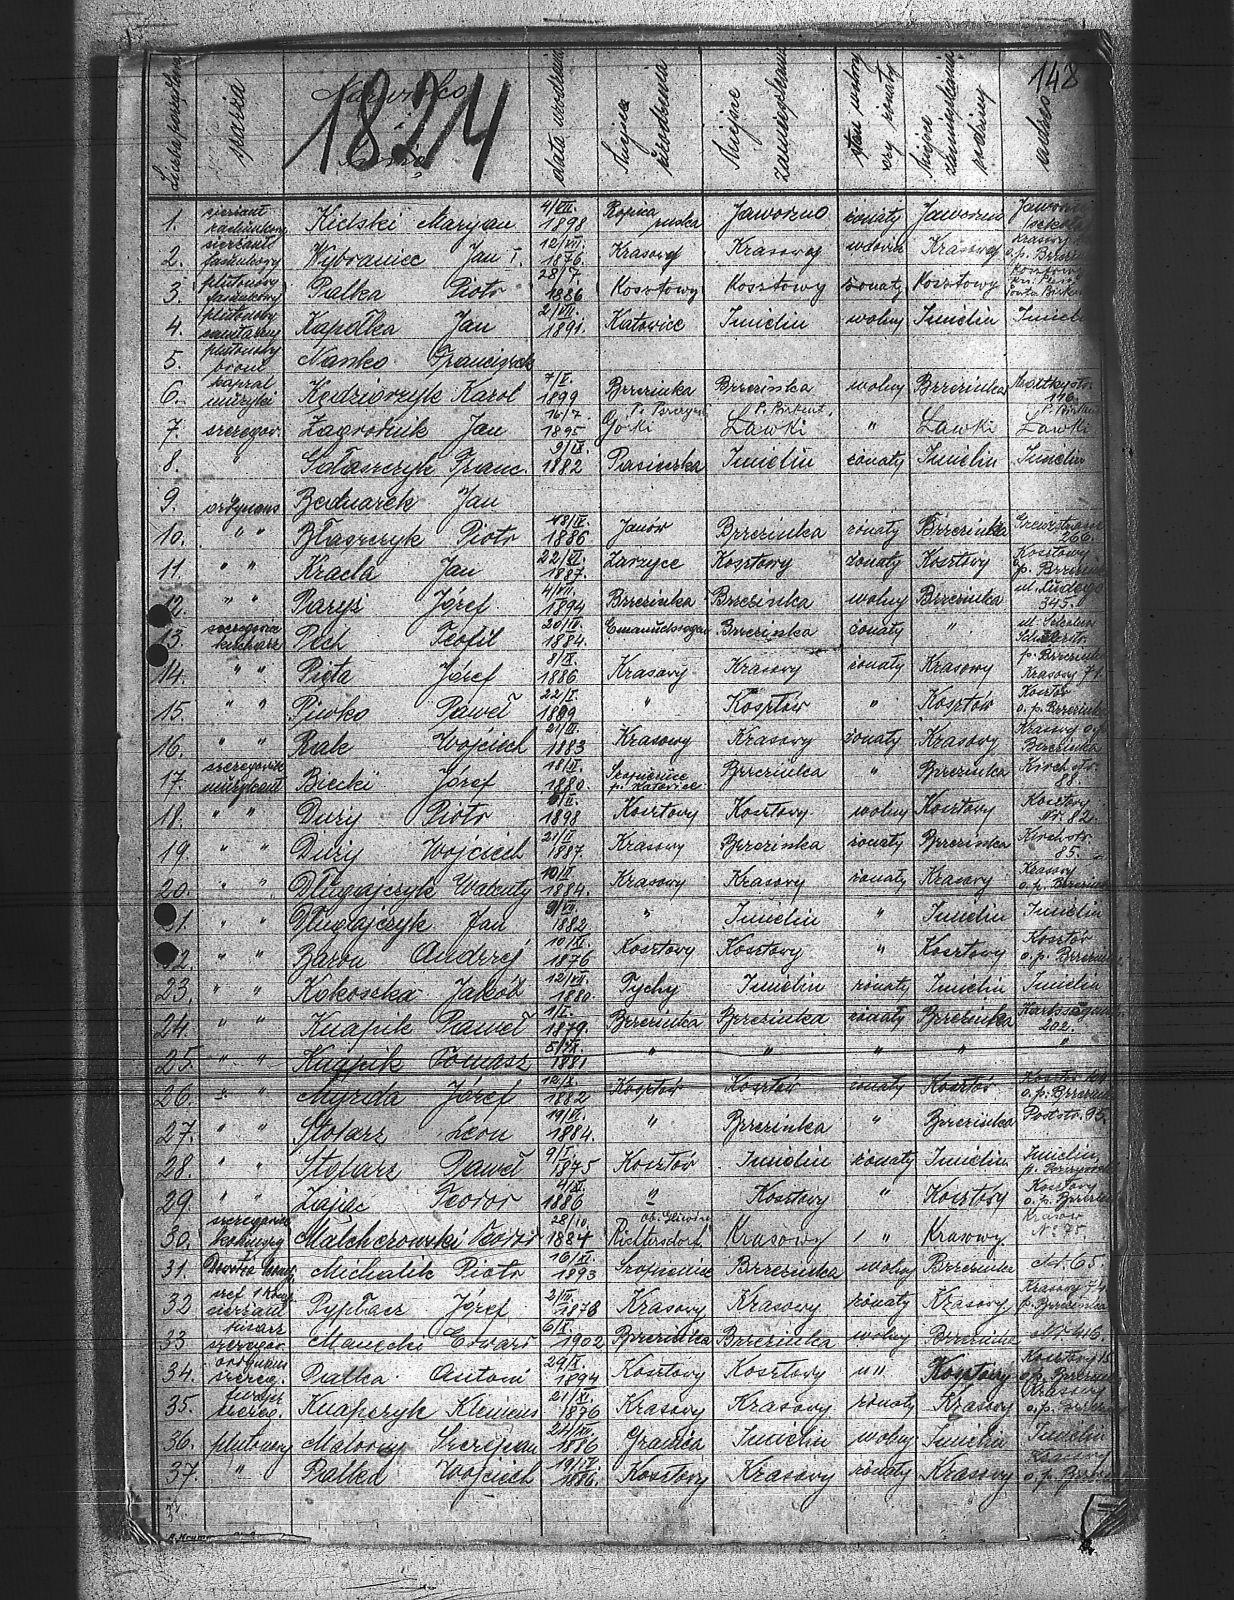 148
1824
Liczba porządkowa szarża Nazwisko i Imię data urodzenia Miejsce urodzenia Miejsce zamieszkania stan wolny czy żonaty Miejsce zamieszkania rodziny
1. sierżant Kielski Maryan 4/VII. 1898 Ropica ruska Jaworzno żonaty Jaworzno Jaworzno
2. sierżant Wybraniec Jan I. 12/VII. 1876. Krasowy Krasowy wdowiec Krasowy Krasowy
3. plutonowy Palka Piotr 28/7. 1886 Kosztowy Kosztowy żonaty Kosztowy
4. plutonowy sanitarny Kapołka Jan 2/VII. 1891. Katowice Imielin wolny Imielin
5. plutonowy broni Nanko Franciszek
6. kapral muzyki Kędziorzyk Karol 7/X. 1899 Brzezinka Brzezinka wolny Brzezinka 146.
7. szeregow. Zagrodnik Jan 16/7. 1895 Górki Ławki " Ławki Ławki
8. " Gołaszczyk Franc. 9/IX. 1882 Imielin żonaty Imielin Imielin
9. ordynans Bednarek Jan
10. " " Błaszczyk Piotr 1886 Janów Brzezinka żonaty Brzezinka 266.
11. " " Kracla Jan 22/VI. 1887. Zarzyce Kosztowy żonaty Kosztowy Kosztowy p. Brzezinka
12. " " Parys Józef 4/VII. 1894 Brzezinka Brzezinka wolny Brzezinka 345.
13. szeregowiec kucharz Pech Teofil 20/IV. 1884. Brzezinka żonaty "
14. " " Pięta Józef 8/IX. 1886 Krasowy Krasowy żonaty Krasowy p. Brzezinka Krasowy 71.
15. " " Piwko Paweł 22/I. 1889 " Kosztów " Kosztów Kosztów o. p. Brzezinka
16. " " Rak Wojciech 21/IV. 1883 Krasowy Krasowy żonaty Krasowy Krasowy o. p. Brzezinka
17. szeregowiec muzykant Biecki Józef 18/II. 1880. Szopienice p. Katowice Brzezinka " Brzezinka Kirchstr. 88.
18. " " Dury Piotr 1898 Kosztowy Kosztowy wolny Kosztowy Kosztowy Nr. 82.
19. " " Dury Wojciech 21/IV 1887. Krasowy Brzezinka żonaty Brzezinka Kirchstr. 85.
20. " " Długajczyk Walenty 10/II. 1884. Krasowy Krasowy żonaty Krasowy Krasowy o. p. Brzezinka
21. " " Długajczyk Jan 9/VI. 1882 " Imielin " Imielin Imielin
22. " " Baron Andrzej 10/XI. 1876 Kosztowy Kosztowy " Kosztowy Kosztów o. p. Brzezinka
23. " " Kokoszka Jakób 12/VII. 1880 Tychy Imielin żonaty Imielin Imielin
24. " " Knapik Paweł 1/I. 1879. Brzezinka Brzezinka żonaty Brzezinka 202.
25. " " Knapik Tomasz 1881 " " " " "
26. " " Myrda Józef 12/X. 1882 Kosztów Kosztów żonaty Kosztów o. p. Brzezinka
27. " " Stolarz Leon 19/VI. 1884. " Brzezinka " Brzezinka Poststr. 95.
28. " " Stolarz Paweł 9/I. 1875 Kosztów Imielin żonaty Imielin. Imielin
29. " " Zając Teodor 4/XI. 1886 " Kosztowy " Kosztowy Kosztowy o. p. Brzezinka
30. szeregowiec Malcherowski 28/10. 1884 Richtersdorf Krasowy " Krasowy No 75.
31. Michalik Piotr 16/VI. 1893 Szopienice Brzezinka wolny Brzezinka Nr. 65
32 szef sierżant Pypłacz Józef 2/III. 1878 Krasowy Krasowy żonaty Krasowy Krasowy 74 p. Brzezinka
33 pisarz szeregow. Manecki Edward 6/IX. 1902 Brzezinka Brzezinka wolny Brzezinka 416.
34. ordynans szereg. Palka Antoni 29/X. 1894 Kosztowy Kosztowy " " Kosztowy Kosztowy 15. o. p. Brzezinka
35. szereg. Knapczyk Klemens 21/XI. 1896 Krasowy Krasowy żonaty Krasowy Krasowy
36. plutonowy Malorny 1886 Granica Imielin wolny Imielin Imielin
37. " Palka Wojciech 19/IV. 1886. Kosztowy Krasowy żonaty Krasowy Krasowy o. p. Brzezinka